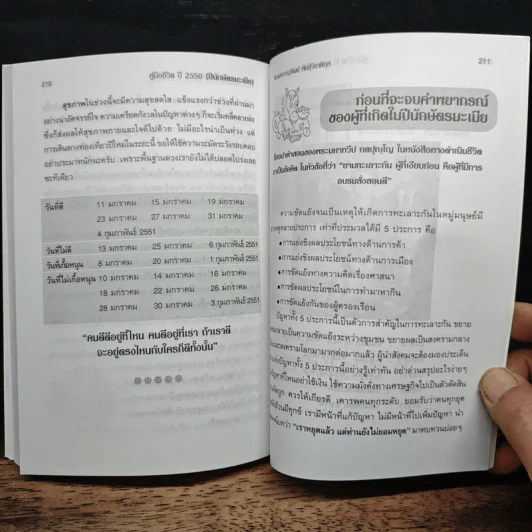 210 คู่มือชีวิต ปี 2550 (ปีนักษัตรมะเมีย)
สุขภาพในช่วงนี้จะมีความสุขสดใส แข็งแรงกว่าช่วงที่ผ่านมา
อย่างน่าอัศจรรย์ใจ ความเครียดกังวลในปัญหาต่างๆ ก็จะเริ่มคลี่คลายลง
ซึ่งก็ส่งผลให้สุขภาพกายและใจดีไปด้วย ไม่มีอะไรน่าเป็นห่วง แต่
การเดินทางท่องเที่ยวปีใหม่ในระยะนี้ ขอให้ใช้ความระมัดระวังรอบคอบ
อย่าประมาทนักนะครับ เพราะพื้นฐานดวงเรายังไม่ได้ปลอดโปร่งเลย
ซะทีเดียว
วันที่ดี 11 มกราคม 15 มกราคม 19 มกราคม
23 มกราคม 27 มกราคม 31 มกราคม
4 กุมภาพันธ์ 2551
วันที่ไม่ดี 13 มกราคม 25 มกราคม 6 กุมภาพันธ์ 2551
วันที่เกื้อหนุน 8 มกราคม 20 มกราคม 1 กุมภาพันธ์ 2551
วันที่ไม่เกื้อหนุน 10 มกราคม 14 มกราคม 16 มกราคม
18 มกราคม 22 มกราคม 26 มกราคม
28 มกราคม 30 มกราคม 3 กุมภาพันธ์ 2551
"คนดีดีอยู่ที่ไหน คนดีอยู่ที่เรา ถ้าเราดี
จะอยู่ตรงไหนกับใครก็ดีทั้งนั้น"
211
ก่อนที่จะจบคำพยากรณ์
ของผู้ที่เกิดในปีนักษัตรมะเมีย
ในหนังสือทางดำเนินชีวิต
ในหัวข้อที่ว่า "ยามทะเลาะกัน ผู้ที่เงียบก่อน คือผู้ที่มีการ
อบรมสั่งสอนดี"
ความขัดแย้งจนเป็นเหตุให้เกิดการทะเลาะกันในหมู่มนุษย์มี
ประการ เท่าที่ประมวลได้มี 5 ประการ คือ
• การแย่งชิงผลประโยชน์ทางด้านการค้า
• การแย่งชิงผลประโยชน์ทางด้านการเมือง
• การขัดแย้งทางความคิดเรื่องศาสนา
• การขัดผลประโยชน์ในการทำมาหากิน
• การขัดแย้งกันของผู้ครองเรือน
ปัญหาทั้ง 5 ประการนี้เป็นตัวการสำคัญในการทะเลาะกัน ขยาย
เป็นความขัดแย้งระหว่างชุมชน ขยายผลเป็นสงครามกลาง
สงครามโลกมามากต่อมากแล้ว ผู้นำสังคมจะต้องมองประเด็น
ปัญหาทั้ง 5 ประการนี้อย่างรู้เท่าทัน อย่าด่วนสรุปอะไรง่ายๆ
ปัญหาที่ไหนอย่าใช้เงิน ใช้ความมั่งคั่งทางเศรษฐกิจไปเป็นตัวตัดสิน
ควรให้เกียรติ เคารพคนทุกระดับ ยอมรับว่าคนทุกยุค
มีทุกข์ เรามีหน้าที่แก้ปัญหา ไม่มีหน้าที่ไปเพิ่มปัญหา นำ
"เราหยุดแล้ว แต่ท่านยังไม่ยอมหยุด" มาทบทวนบ่อยๆ